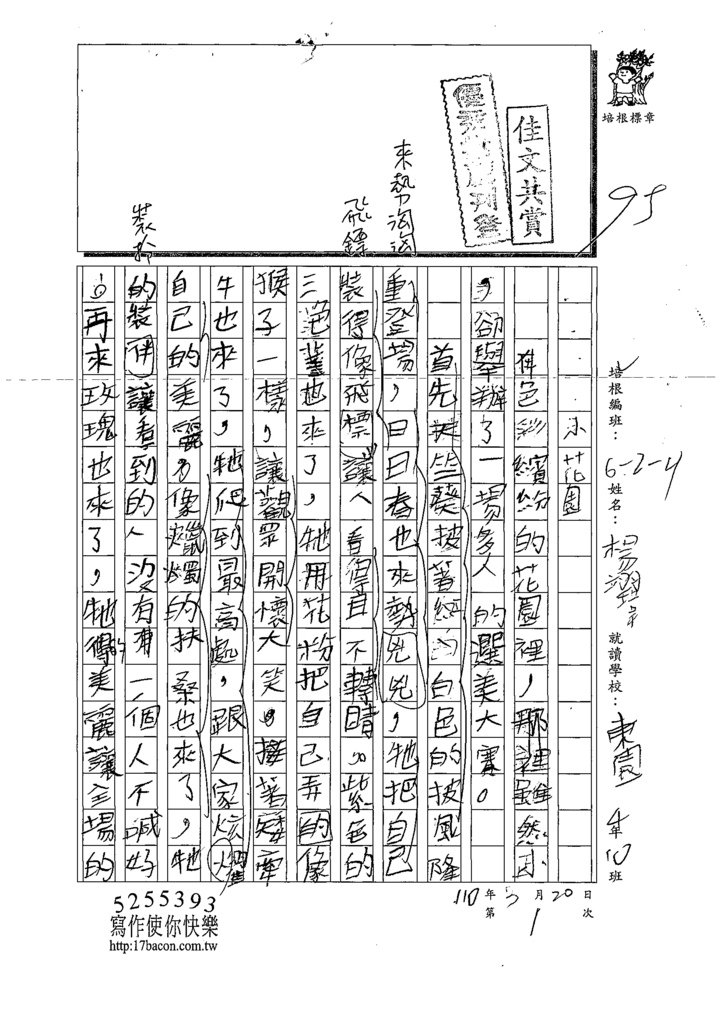 培根標章
佳文共賞
95
來勢洶洶
飛鏢
裝扮
培根編班：6-2-4 姓名：楊 就讀學校：東園 4年10班
小花園
在色彩繽紛的花園裡，那裡雖然小
，卻舉辦了一場多人的選美大賽。
首先蜀葵披著純白色的披風隆
重登場，日日春也來勢兇兇，牠把自己
裝得像飛標讓人看得目不轉睛。紫色的
三色堇也來了，牠用花粉把自己弄的像
猴子一樣，讓觀眾開懷大笑。接著矮牽
牛也來了，牠爬到最高處，跟大家炫燿
自己的美麗。像蠟燭的扶桑也來了，牠
的裝伴讓看到的人沒有一個人不喊好
。再來玫瑰也來了，牠的美麗讓全場的
110年5月20日
第1次
5255393
寫作使你快樂
http:17bacon.com.tw